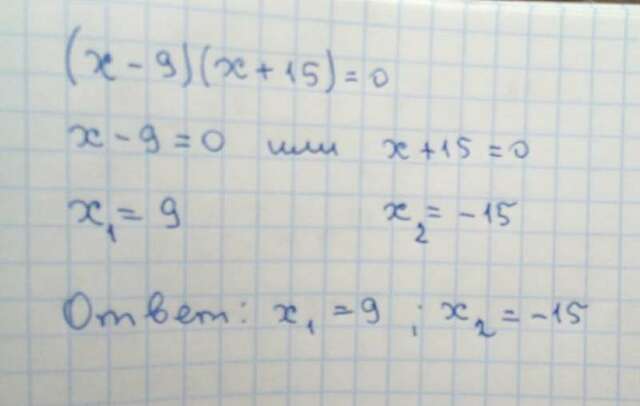 (x - 9)(x + 15) = 0
x - 9 = 0 или x + 15 = 0
x₁ = 9 x₂ = -15
Ответ: x₁ = 9 ; x₂ = -15